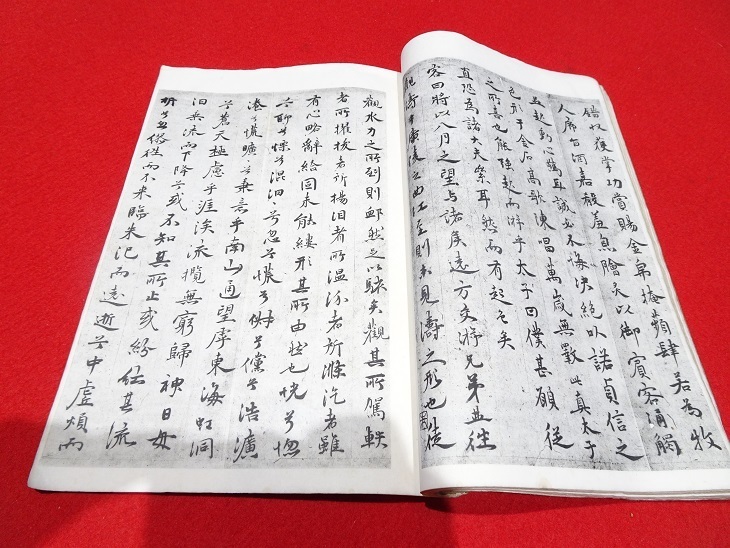 錯収獲掌功賞賜金帛掩蘋肆若為牧
人席旨酒嘉殽羞炰膾炙以御賓客涌觸
並起動心驚耳誠必不悔決絕以諾貞信之
色形于金石高歌陳唱萬歲無斁此真太子
之所喜也能強起而游乎太子曰僕甚願從
直恐為諸大夫累耳然而有起色矣
客曰將以八月之望与諸矦遠方交游兄弟並往
觀濤乎廣陵之曲江至則未見濤之形也徒
觀水力之所到則卹然足以駭矣觀其所駕軼
者所擢拔者所揚汩者所温汾者所滌汔者雖
有心略辭給固未能縷形其所由然也怳兮惚
兮聊兮慄兮混汩汩兮忽兮慌兮俶兮儻兮浩瀇
瀁兮慌曠曠兮秉意乎南山通望乎東海虹洞
兮蒼天極慮乎涯涘流攬無窮歸神日母
汩乘流而下降兮或不知其所止或紛紜其流
折兮忽繆往而不来臨朱汜而遠逝兮中虛煩而